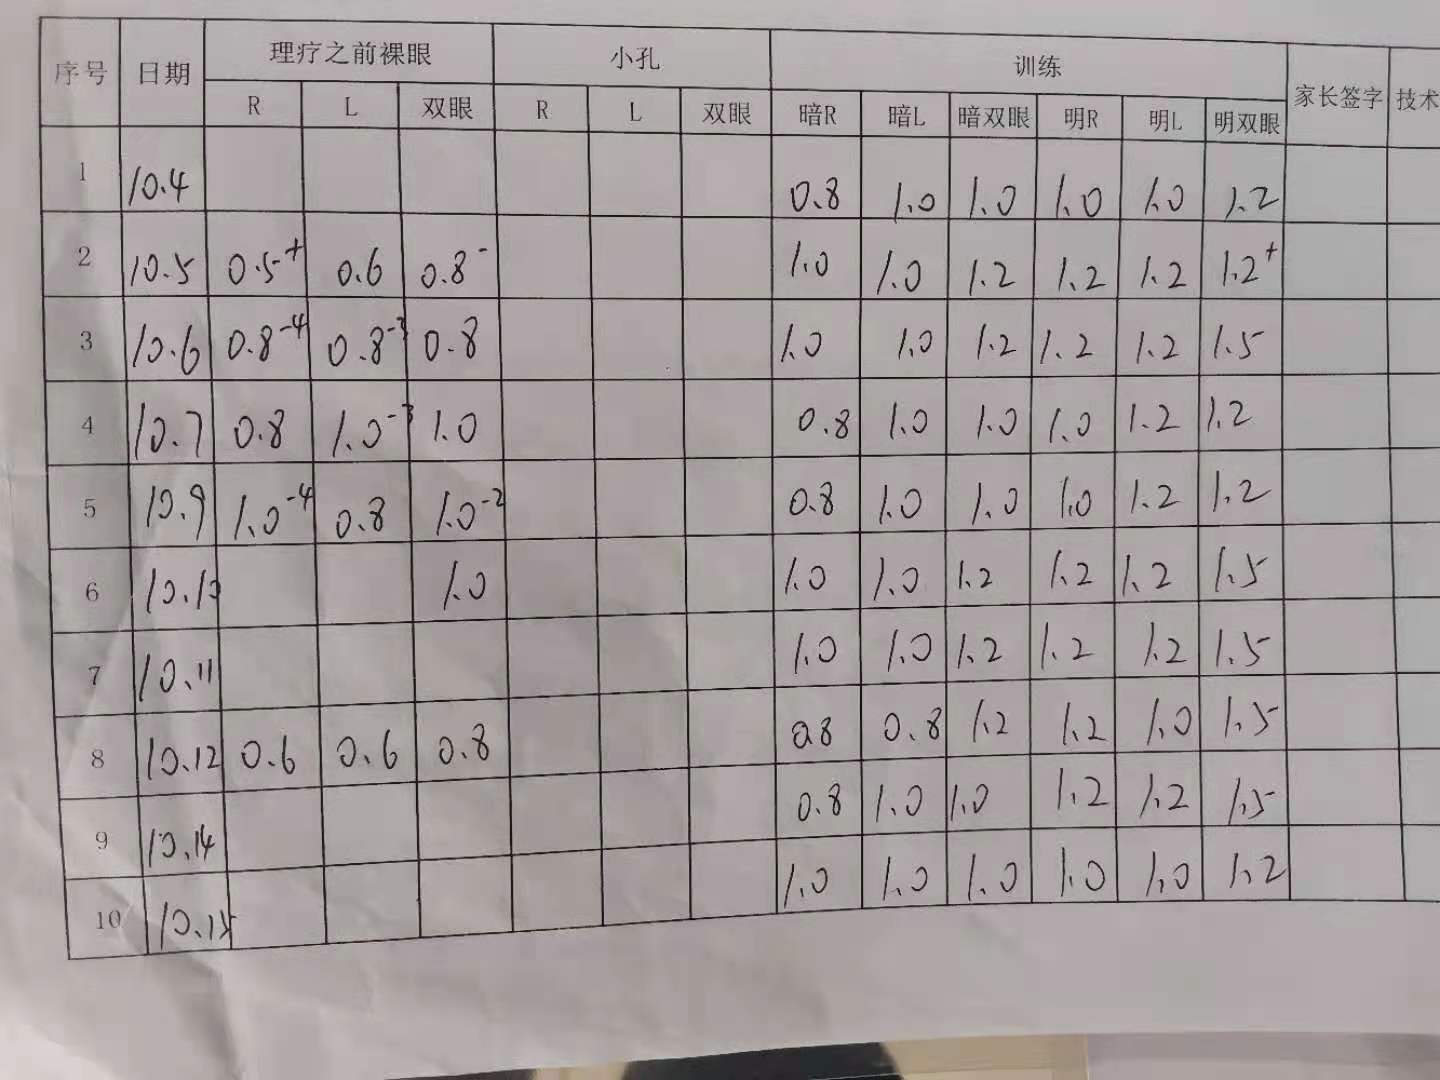 序号 日期 理疗之前裸眼 小孔 训练 家长签字 技术
R L 双眼 R L 双眼 暗R 暗L 暗双眼 明R 明L 明双眼
1 10.4 0.8 1.0 1.0 1.0 1.0 1.2
2 10.5 0.5+ 0.6 0.8- 1.0 1.0 1.2 1.2 1.2 1.2+
3 10.6 0.8-4 0.8-3 0.8 1.0 1.0 1.2 1.2 1.2 1.5
4 10.7 0.8 1.0-3 1.0 0.8 1.0 1.0 1.0 1.2 1.2
5 10.9 1.0-4 0.8 1.0-2 0.8 1.0 1.0 1.0 1.2 1.2
6 10.10 1.0 1.0 1.0 1.2 1.2 1.2 1.5
7 10.11 1.0 1.0 1.2 1.2 1.2 1.5
8 10.12 0.6 0.6 0.8 0.8 0.8 1.2 1.2 1.0 1.5
9 10.14 0.8 1.0 1.0 1.2 1.2 1.5
10 10.15 1.0 1.0 1.0 1.0 1.0 1.2